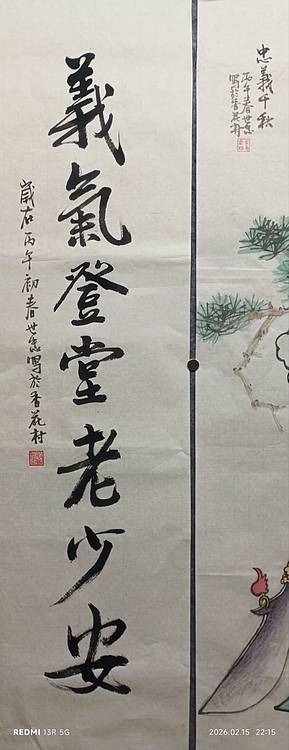 忠義千秋
丙午春世忠
寫於香花村
義氣登堂老少安
歲在丙午初春世忠寫於香花村
REDMI 13R 5G
2026.02.15 22:15